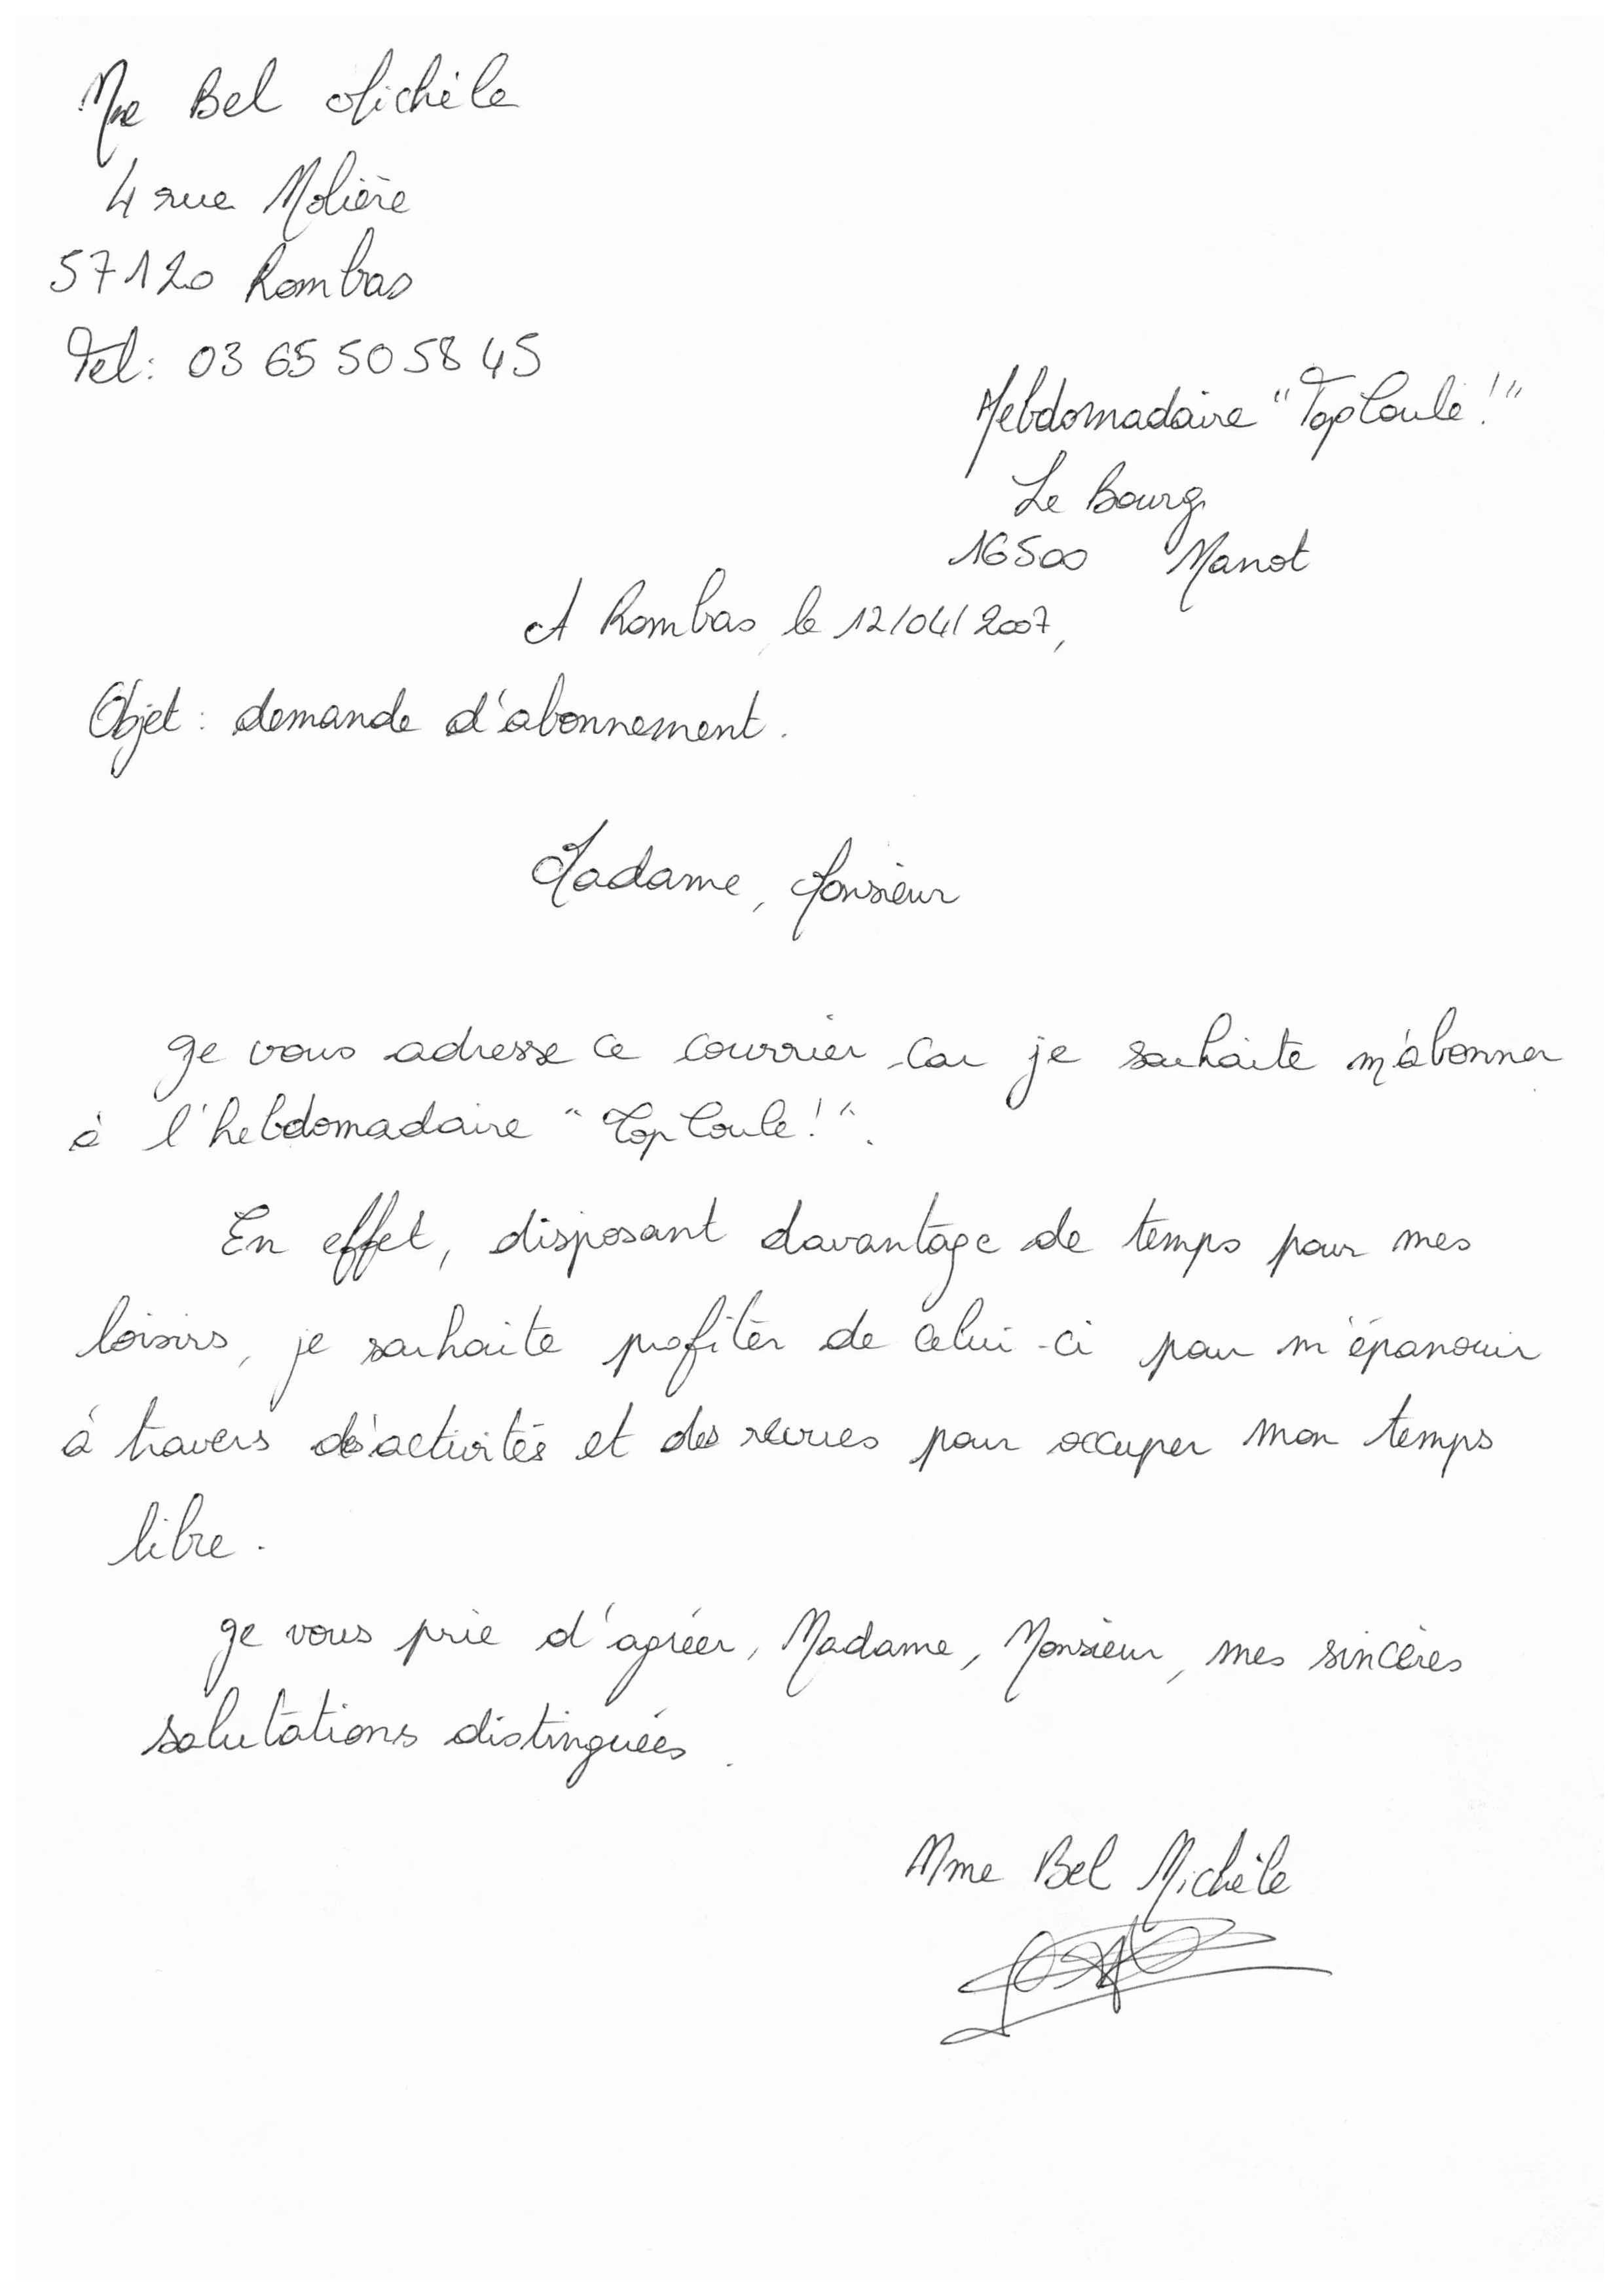 Mme Bel Michèle
4 rue Molière
57120 Rombas
Tel: 03 65 50 58 45
Hebdomadaire "Top Coule!"
Le Bourg
16500 Manot
A Rombas, le 12/04/2007,
Objet : demande d'abonnement.
Madame, Monsieur
Je vous adresse ce courrier car je souhaite m'abonner
à l'hebdomadaire "Top Coule!".
En effet, disposant davantage de temps pour mes
loisirs, je souhaite profiter de celui-ci pour m'épanouir
à travers d'activités et des revues pour occuper mon temps
libre.
Je vous prie d'agréer, Madame, Monsieur, mes sincères
salutations distinguées.
Mme Bel Michèle